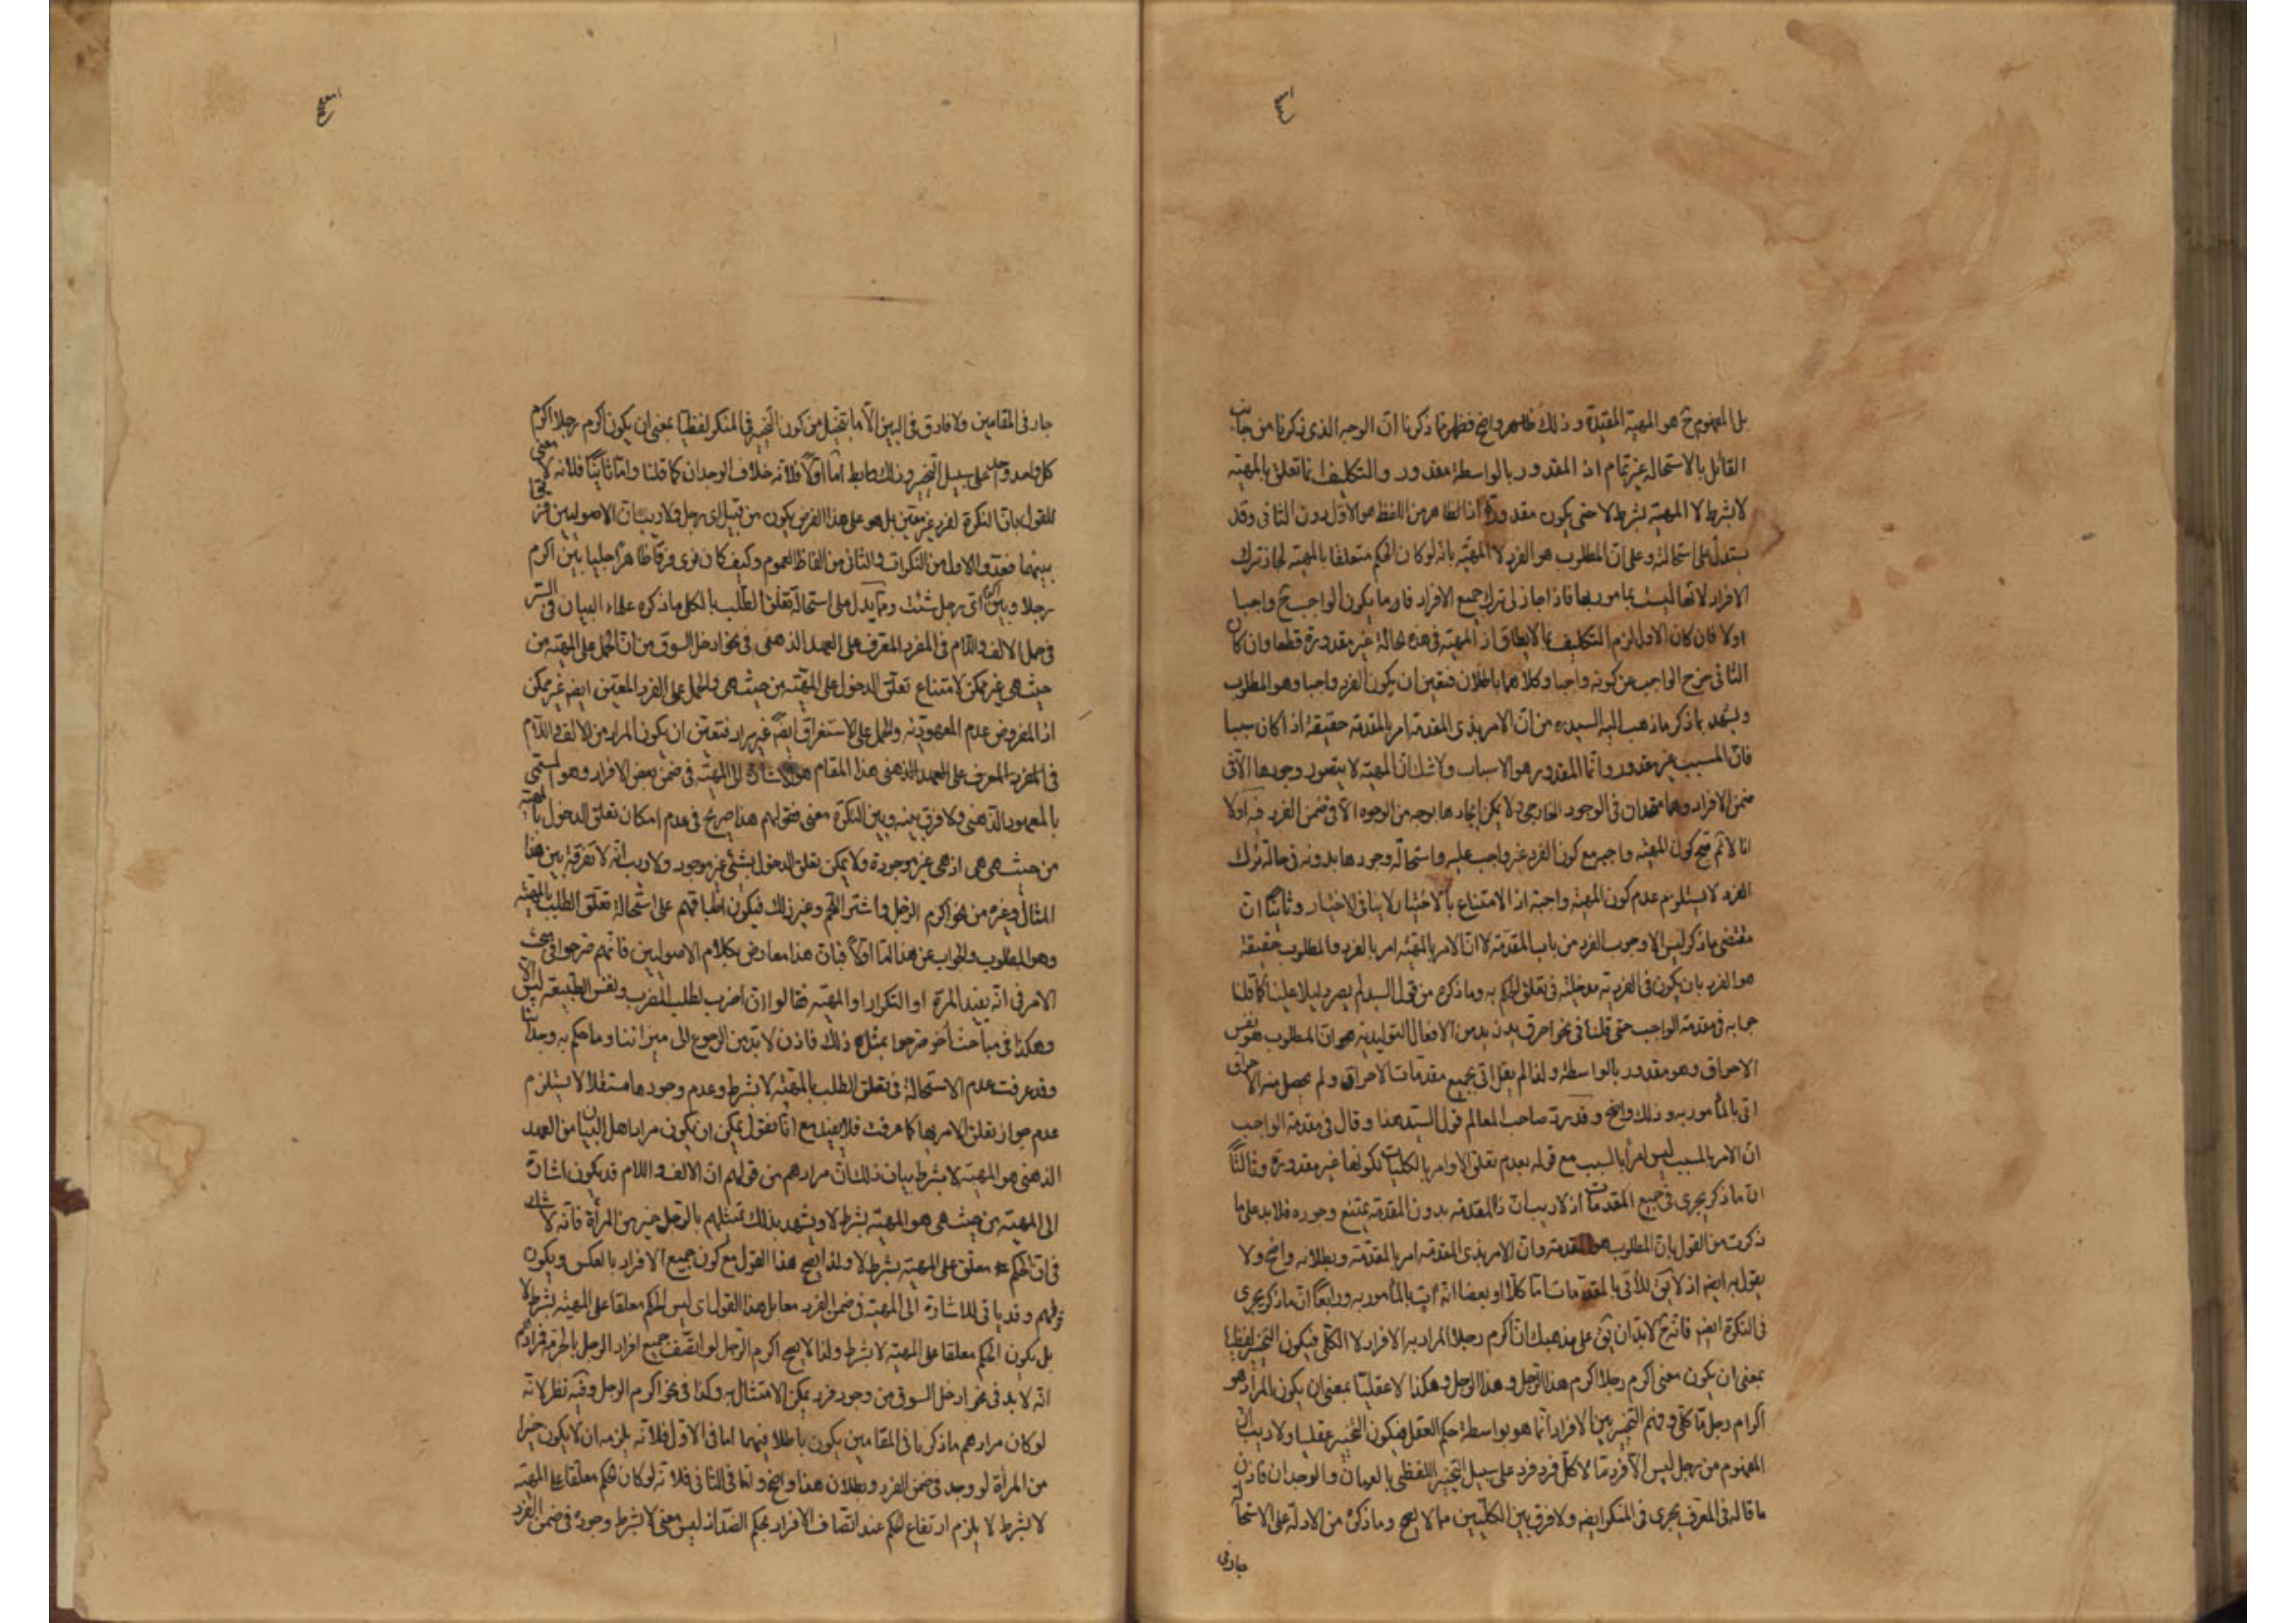 بل المفهوم ح هو المهيّة المقيّدة وذلك ظاهر واضح فظهر مما ذكرنا ان الوجه الذى ذكرنا من جانب
القائل بالاستحالة غير تمام اذ المقدور بالواسطة مقدور والتكليف انما تعلق بالمهيّة
لا بشرط لا المهيّة بشرط لا حتى يكون مقدورة اذ الظاهر من اللفظ هو الاول دون الثانى وقد
يستدل على استحالته وعلى ان المطلوب هو الفرد لا المهيّة بانه لو كان الحكم متعلقا بالمهيّة لجاز ترك
الافراد لانها ليست بمامور بها فاذا جاز لى ترك جميع الافراد فاما يكون الواجب ح واجبا
اولا فان كان الاول لزم التكليف بما لا يطاق اذ المهيّة فى هذه الحالة غير مقدورة قطعا وان كان
الثانى خرج الواجب عن كونه واجبا وكلاهما باطلان فتعين ان يكون الفرد واجبا وهو المطلوب
ويشهد بما ذكر ما ذهب اليه السيد ره من ان الامر بذى المقدمة امر بالمقدمة حقيقة اذا كان سببا
فان المسبب غير مقدور وانما المقدور هو الاسباب ولا شك ان المهيّة لا يتصور وجودها الا فى
ضمن الافراد وهما متحدان فى الوجود الخارجى ولا يمكن ايجادها بوجه من الوجوه الا فى ضمن الفرد فيه اولا
انا لانم قبح كون المهيّة واجبه مع كون الفرد غير واجب عليه واستحالة وجودها بدونه فى حالة ترك
الفرد لا يستلزم عدم كون المهيّة واجبة اذ الامتناع بالاختيار لا ينافى الاختيار وثانيا ان
مقتضى ما ذكر ليس الا وجوب الفرد من باب المقدمة لا ان الامر بالمهيّة امر بالفرد والمطلوب حقيقة
هو الفرد بان يكون فى الفردية مدخلية فى تعلق الحكم به وما ذكره من قول السيد لم يصر دليلا علينا كما قلنا
جوابه فى مقدمة الواجب حتى قلنا فى نحو احرق بدن زيد من الافعال التوليدية هو ان المطلوب هو نفس
الاحراق وهو مقدور بالواسطة ولذا لم يقل اتى بجميع مقدمات الاحراق ولم يحصل منه الاحراق
اتى بالمأمور به وذلك واضح وقد رد صاحب المعالم قول السيد هذا وقال فى مقدمة الواجب
ان الامر بالمسبب ليس امرا بالسبب مع قوله بعدم تعلق الاوامر بالكليات لكونها غير مقدورة وثالثا
ان ما ذكر يجرى فى جميع المقدمات اذ لا ريب ان ذا المقدمة بدون المقدمة يمتنع وجوده فلا بد على ما
ذكرت من القول بان المطلوب هو المقدمة وان الامر بذى المقدمة امر بالمقدمة وبطلانه واضح ولا
يقول به ايضا اذ لا يق للأتى بالمقدمات اما كلا او بعضا انه اتى بالمأمور به ورابعا ان ما ذكر يجرى
فى النكرة ايضا فانه ح لابد ان يق على مذهبك ان اكرم رجلا المراد به الافراد لا الكلى فيكون التخيير لفظيا
بمعنى ان يكون معنى اكرم رجلا اكرم هذا الرجل وهذا الرجل وهكذا لا عقليا بمعنى ان يكون المراد هو
اكرام رجل ما كلى وفهم التخيير بين الافراد انما هو بواسطة حكم العقل فيكون التخيير عقليا ولا ريب ان
المفهوم من رجل ليس الا فرد ما لا كل فرد فرد على سبيل التخيير اللفظى بالعيان والوجدان فاذن
ما قاله فى المعرف يجرى فى المنكر ايضا ولا فرق بين الكليين مما لا يصح وما ذكره من الادلة على الاستحالة
جار فى
جار فى المقامين ولا فارق فى البين الا ما يتخيل من كون التخيير فى المنكر لفظيا بمعنى ان يكون اكرم رجلا اكرم
كل واحد واحد على سبيل التخيير وذلك ساقط اما اولا فلانه خلاف الوجدان كما قلنا واما ثانيا فلانه لا معنى
للقول بان النكرة لفرد غير معين بل هو على هذا الفرض يكون من قبيل اى رجل ولا ريب ان الاصوليين فرقوا
بينهما فعدوا الاول من النكرات والثانى من الفاظ العموم وكيف كان نرى فرقا ظاهرا جليا بين اكرم
رجلا وبين اكرم اى رجل شئت ومما يدل على استحالة تعلق الطلب بالكلى ما ذكره علماء البيان فى السر
فى حمل الالف واللام فى المفرد المعرف على العهد الذهنى فى نحو ادخل السوق من ان الحمل على المهيّة من
حيث هى غير ممكن لامتناع تعلق الدخول على المهيّة من حيث هى والحمل على الفرد المعين ايضا غير ممكن
اذ المفروض عدم المعهودية والحمل على الاستغراق ايضا غير مراد فتعين ان يكون المراد من الالف واللام
فى المفرد المعرف على العهد الذهنى هذا المقام هو الاشارة الى المهيّة فى ضمن بعض الافراد وهو المسمى
بالمعهود الذهنى ولا فرق بينه وبين النكرة معنى فقولهم هذا صريح فى عدم امكان تعلق الدخول بالمهيّة
من حيث هى هى اذ هى غير موجودة ولا يمكن تعلق الدخول بشئ غير موجود ولا ريب انه لا تفرقة بين هذا
المثال وغيره من نحو اكرم الرجل واشتر اللحم وغير ذلك فيكون اطباقهم على استحالة تعلق الطلب بالمهيّة
وهو المطلوب والجواب عن هذا اما اولا فبان هذا معارض بكلام الاصوليين فانهم صرحوا فى مبحث
الامر فى انه يفيد المرة او التكرار او المهيّة فقالوا ان اضرب لطلب الضرب ونفس الطبيعة ليس الا
وهكذا فى مباحث اخر صرحوا بمثل ذلك فاذن لا بد من الرجوع الى ميزاننا وما حكم به وجداننا
وقد عرفت عدم الاستحالة فى تعلق الطلب بالمهيّة لا بشرط وعدم وجودها مستقلا لا يستلزم
عدم جواز تعلق الامر بها كما عرفت فلا يفيد مع انا نقول يمكن ان يكون مراد اهل البيان من العهد
الذهنى هو المهيّة لا بشرط بيان ذلك ان مرادهم من قولهم ان الالف واللام قد يكون اشارة
الى المهيّة من حيث هى هو المهيّة بشرط لا ويشهد بذلك تمثيلهم بالرجل خير من المرأة فانه لا شك
فى ان الحكم معلق على المهيّة بشرط لا ولذا يصح هذا القول مع كون جميع الافراد بالعكس ويكون
قولهم وقد ياتى للاشارة الى المهيّة فى ضمن الفرد مقابل هذا القول اى ليس الحكم معلقا على المهيّة بشرط لا
بل يكون الحكم معلقا على المهيّة لا بشرط ولذا لا يصح اكرم الرجل لو اتصف جميع افراد الرجل بالحرمة فمرادهم
انه لا بد فى نحو ادخل السوق من وجود فرد يمكن الامتثال به وكذا فى نحو اكرم الرجل وفيه نظر لانه
لو كان مرادهم ما ذكر فى المقامين يكون باطلا فيهما اما فى الاول فلانه يلزمه ان لا يكون خيرا
من المرأة لو وجد فى ضمن الفرد وبطلان هذا واضح واما فى الثانى فلانه لو كان الحكم معلقا على المهيّة
لا بشرط لا يلزم ارتفاع الحكم عند اتصاف الافراد بحكم الضد اذ ليس معنى لا بشرط وجوده فى ضمن الفرد